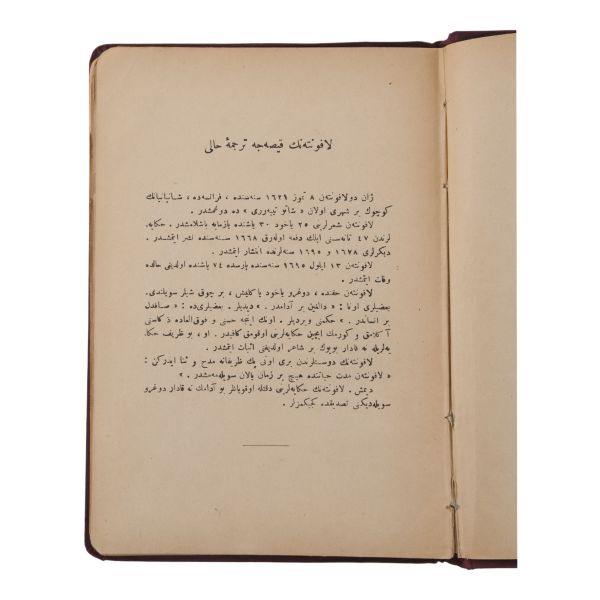 لافونته‌نك قيصه‌جه ترجمۀ حالى
ژان دولافونته‌ن ٨ تموز ١٦٢١ سنه‌سنده ، فرانسه‌ده ، شانپانيانك
كوچوك بر شهرى اولان « شاتو تييه‌ررى » ده دوغمشدر .
لافونته‌ن شعرلرينى ٢٥ ياخود ٣٠ ياشنده يازمايه باشلامشدر . حكايه‌
لرندن ٤٧ تانه‌سنى ايلك دفعه اوله‌رق ١٦٦٨ سنه‌سنده نشر ايتمشدر .
ديكرلرى ١٦٧٨ و ١٦٩٥ سنه‌لرنده انتشار ايتمشدر .
لافونته‌ن ١٣ ايلول ١٦٩٥ سنه‌سنده پارسده ٧٤ ياشنده اولديغى حالده
وفات ايتمشدر .
لافونته‌ن حقنده ، دوغرو ياخود ياكليش ، بر چوق شيلر سويلندى .
بعضيلرى اوكا : « دالغين بر آدامدر . » ديديلر . بعضيلرى‌ده : « صافدل
بر انساندر . » حكمنى ويرديلر . اونك اينجه حسنى و فوق‌العاده ذكاسنى
آكلامق و كورمك ايچين حكايه‌لرينى اوقومق كافيدر . او ، بو ظريف حكا
يه‌لريله نه قادار بويوك بر شاعر اولديغنى اثبات ايتمشدر .
لافونته‌نك دوستلرندن برى اونى پك ظريفانه مدح و ثنا ايدركن :
« لافونته‌ن مدت حياتنده هيچ بر زمان يالان سويله‌مه‌مشدر . »
ديمش . لافونته‌نك حكايه‌لرينى دقتله اوقويانلر بو آدامك نه قادار دوغرو
سويله‌ديكنى تصديقده كجيكمزلر .